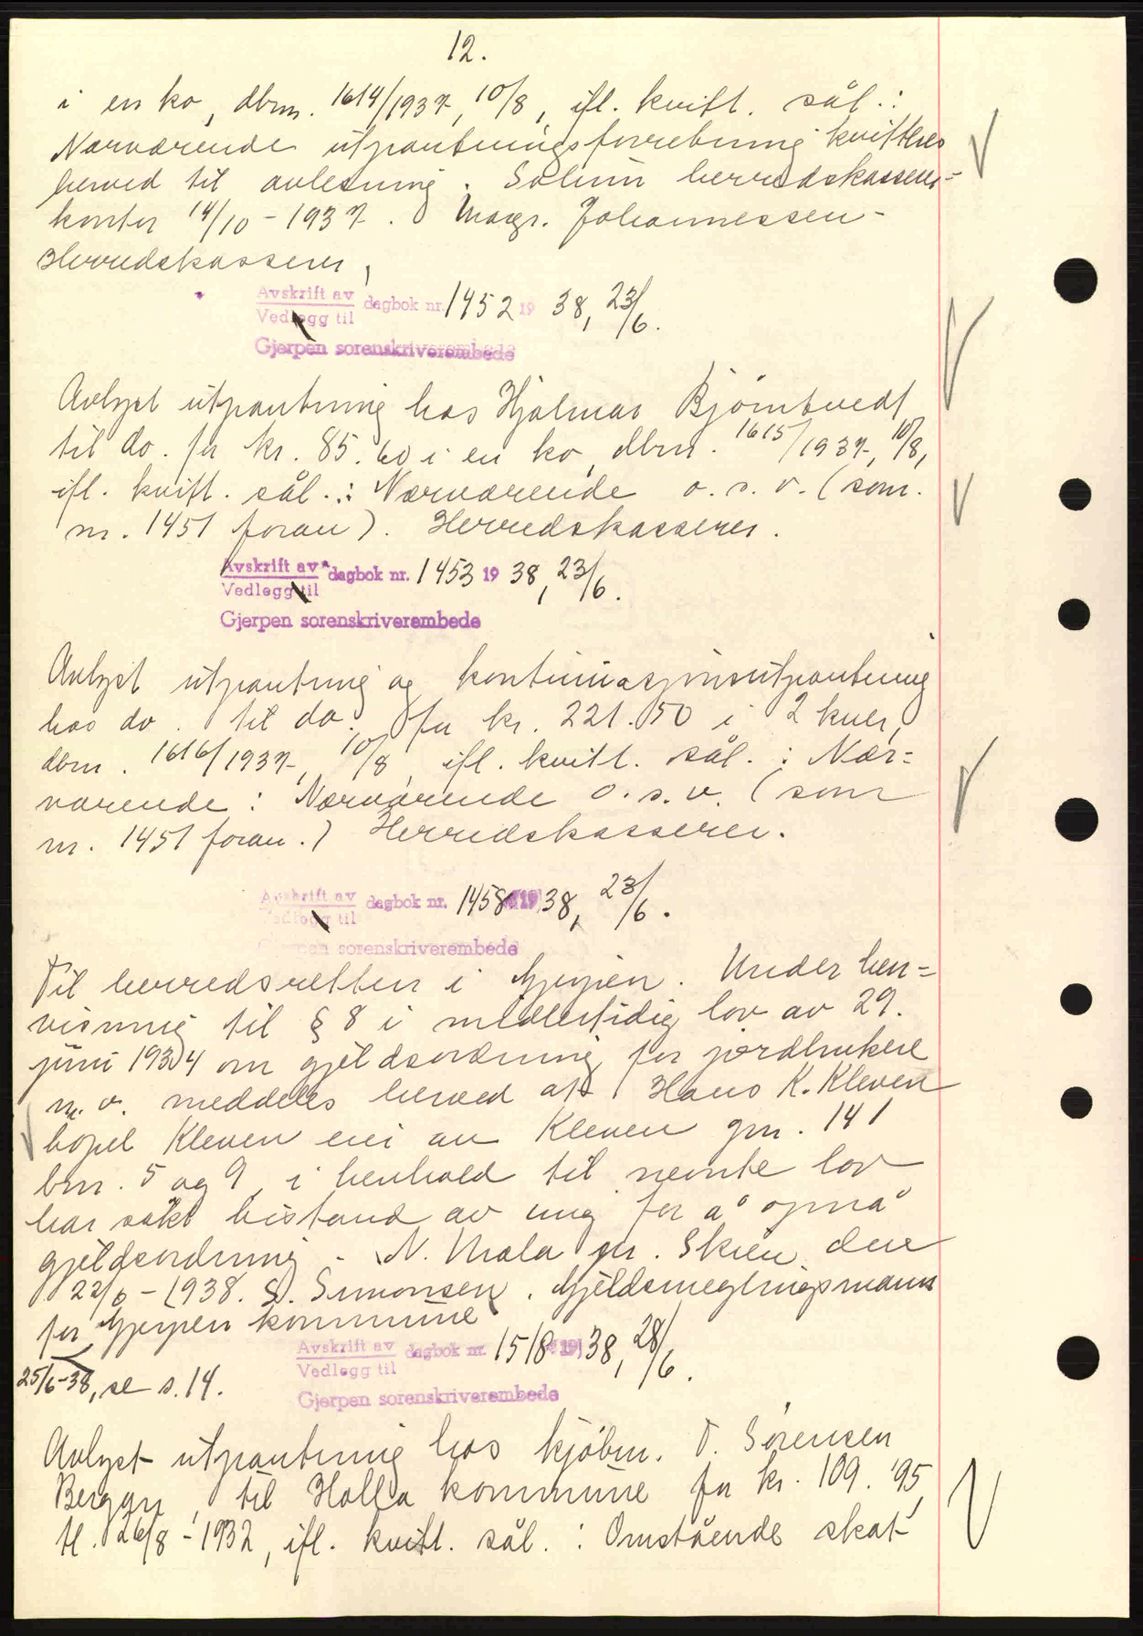 12.
i en ko, dbnr. 1614/1937, 10/8, ifl. kvitt. sål.:
Nærværende utpantningsforretning kvitteres
herved til avlesning. Solum herredskasserer-
kontor 14/10-1937. Margr. Johannessen -
Herredskasserer,
Avskrift av
Vedlegg til
dagbok nr. 1452 19 38, 23/6.
Gjerpen sorenskriverembede
Avlyst utpantning hos Hjalmar Bjørntvedt
til do. for kr. 85.60 i en ko, dbnr. 1615/1937, 10/8,
ifl. kvitt. sål.: Nærværende o.s.v. (som
nr. 1451 foran). Herredskasserer.
Avskrift av
Vedlegg til
dagbok nr. 1453 19 38, 23/6.
Gjerpen sorenskriverembede
Avlyst utpantning og kontinuasjonsutpantning
hos do. til do. for kr. 221.50 i 2 kuer,
dbnr. 1616/1937, 10/8, ifl. kvitt. sål.: Nær=
værende: Nærværende o.s.v. (som
nr. 1451 foran.) Herredskasserer.
Avskrift av
Vedlegg til
dagbok nr. 1458 19 38, 23/6.
Gjerpen sorenskriverembede
Til herredsretten i Gjerpen. Under hen=
visning til § 8 i midlertidig lov av 29.
juni 1934 om gjeldsordning for jordbrukere
m.v. meddeles herved at Hans K. Kleven
bopel Kleven eier av Kleven gnr. 141
bnr. 5 og 9, i henhold til nevnte lov
har søkt bistand av mig for å opnå
gjeldsordning. N. Mæla pr. Skien den
22/6-1938. S. Simonsen. Gjeldsmeglingsmann
for Gjerpen kommune
25/6-38, se s. 14.
Avskrift av
Vedlegg til
dagbok nr. 1518 19 38, 28/6.
Gjerpen sorenskriverembede
Avlyst utpantning hos kjøbm. T. Sørensen
Berggr, til Holla kommune for kr. 109.95,
tl. 26/8-1932, ifl. kvitt. sål.: Omstående skat